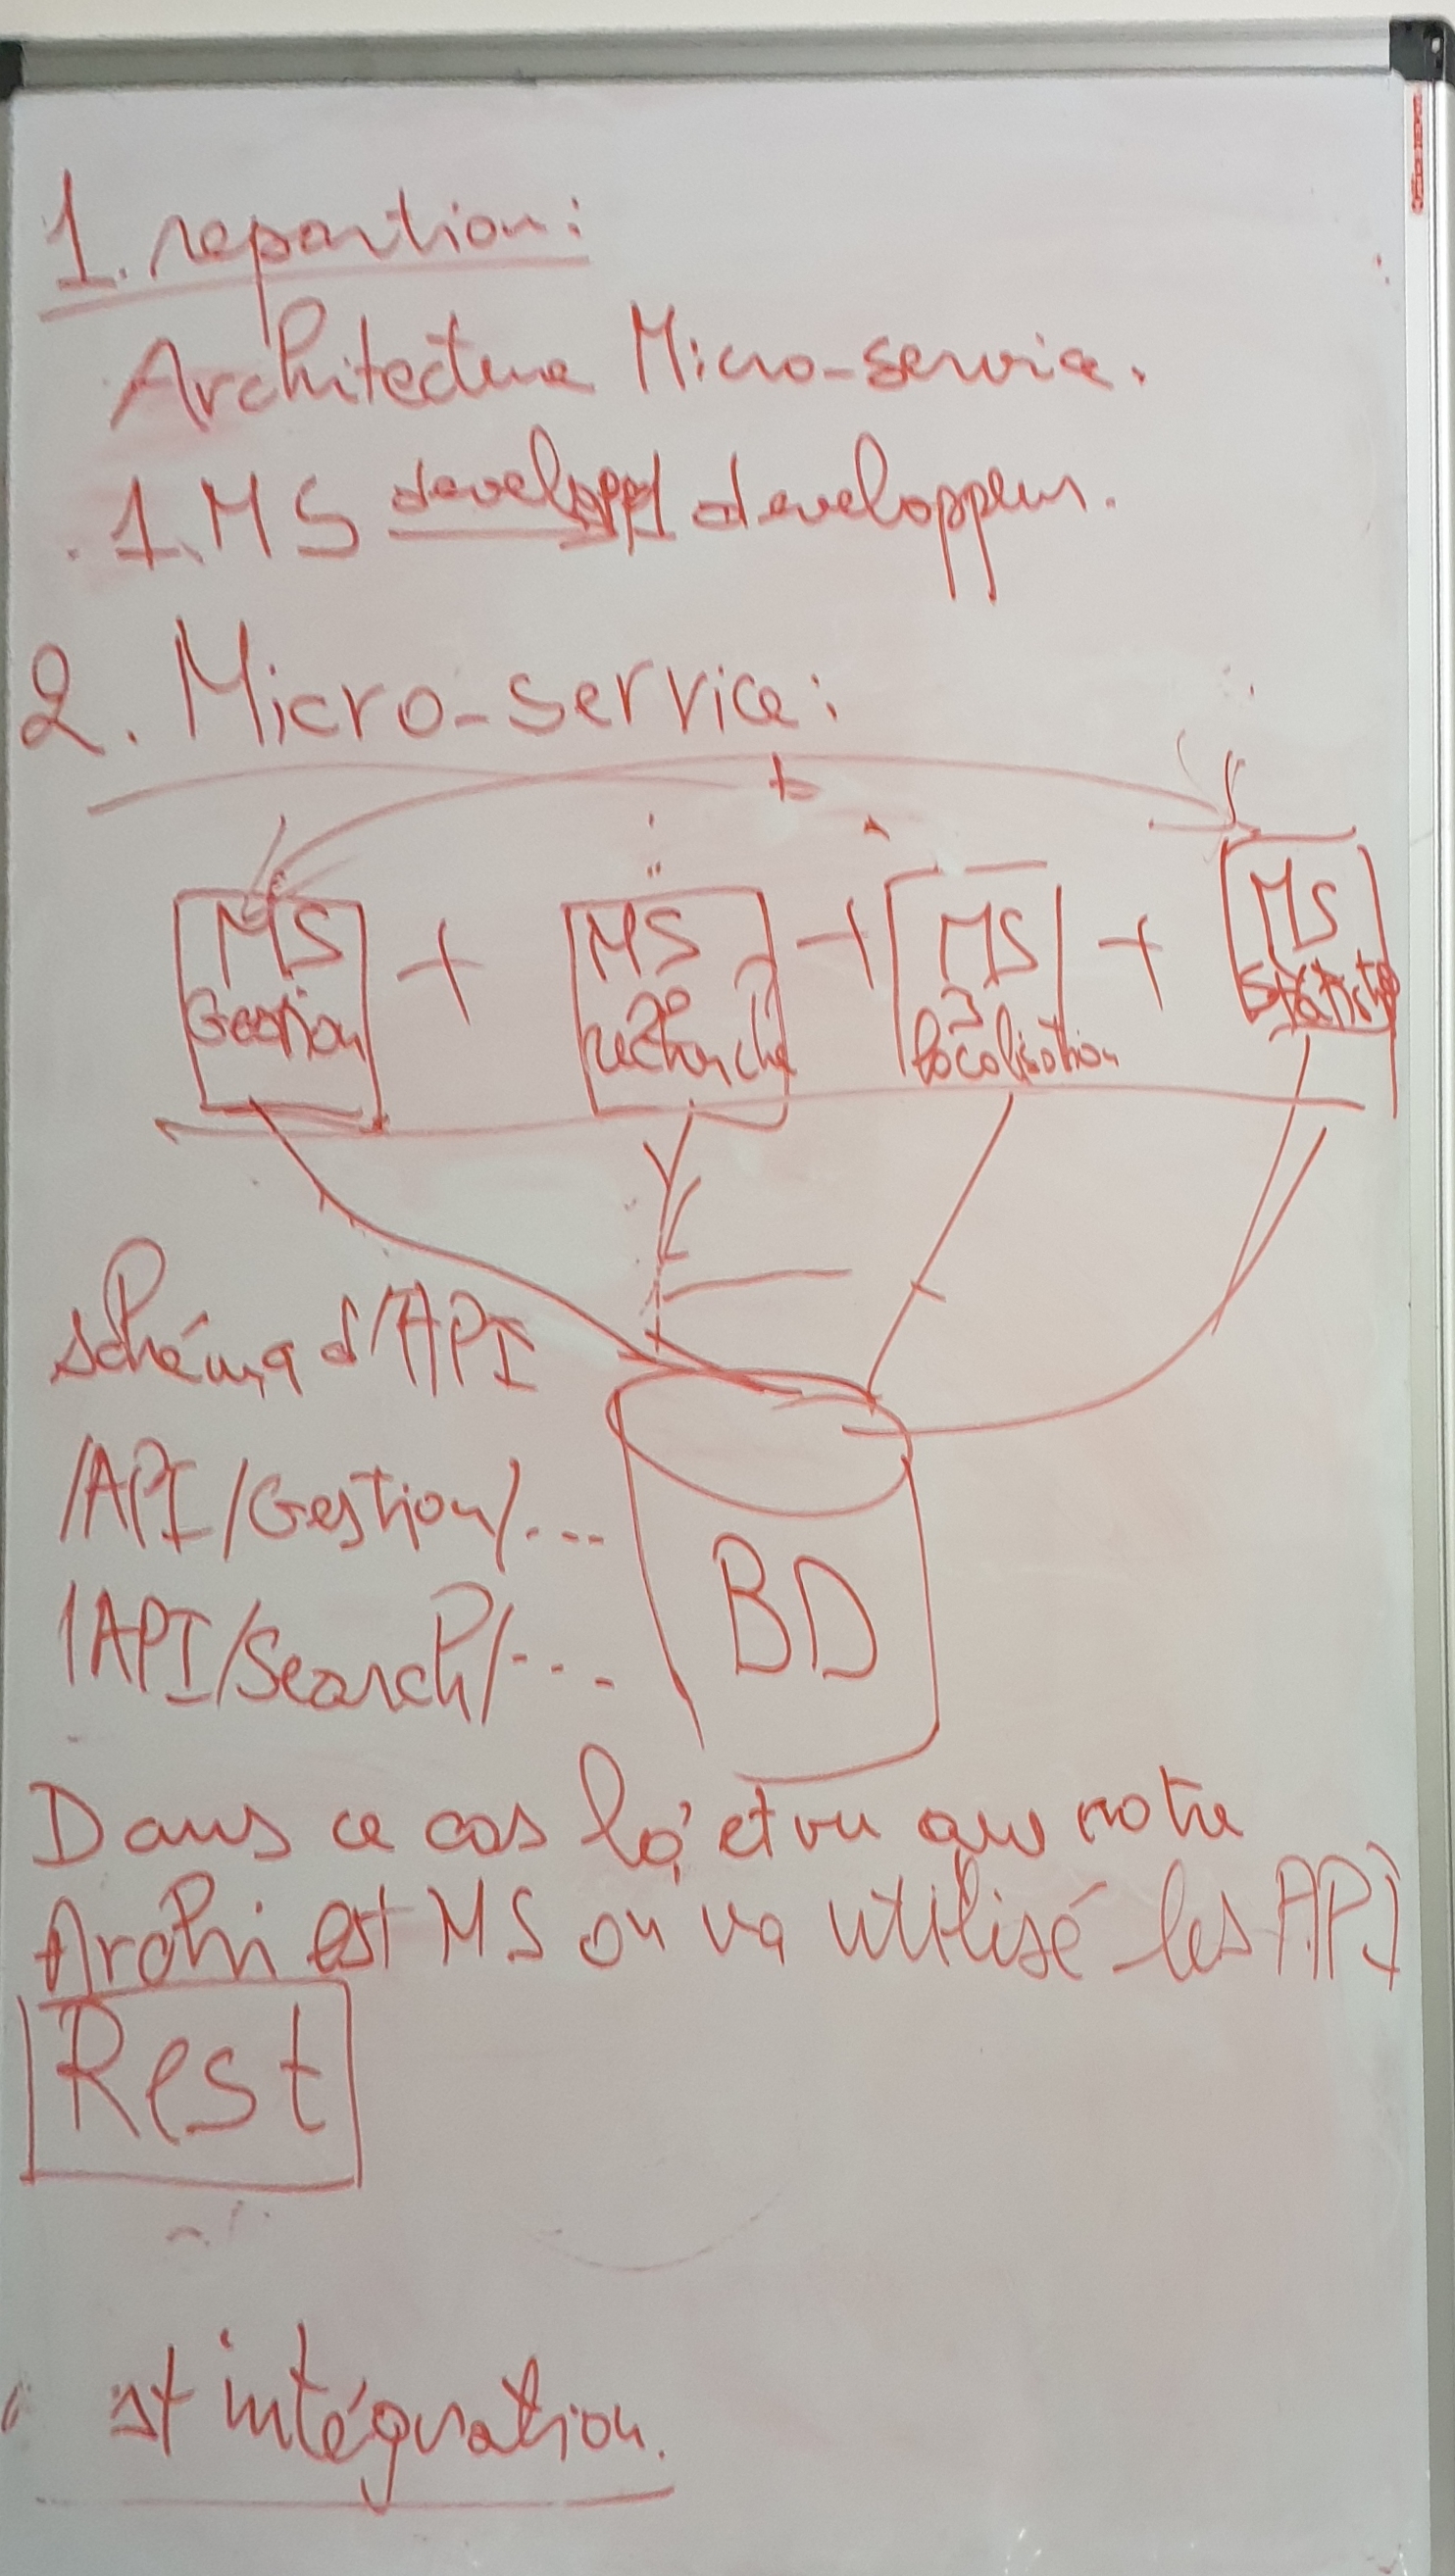 1. repartion:
Architecture Micro-service.
1.MS developpeur.
2. Micro-service:
MS + MS + MS + MS
Gestion recherche localisation
schéma d'API
/API/Gestion/...
/API/Search/...
BD
Dans ce cas là et vu que notre
Archi est MS on va utilisé les API
Rest
st intégration.